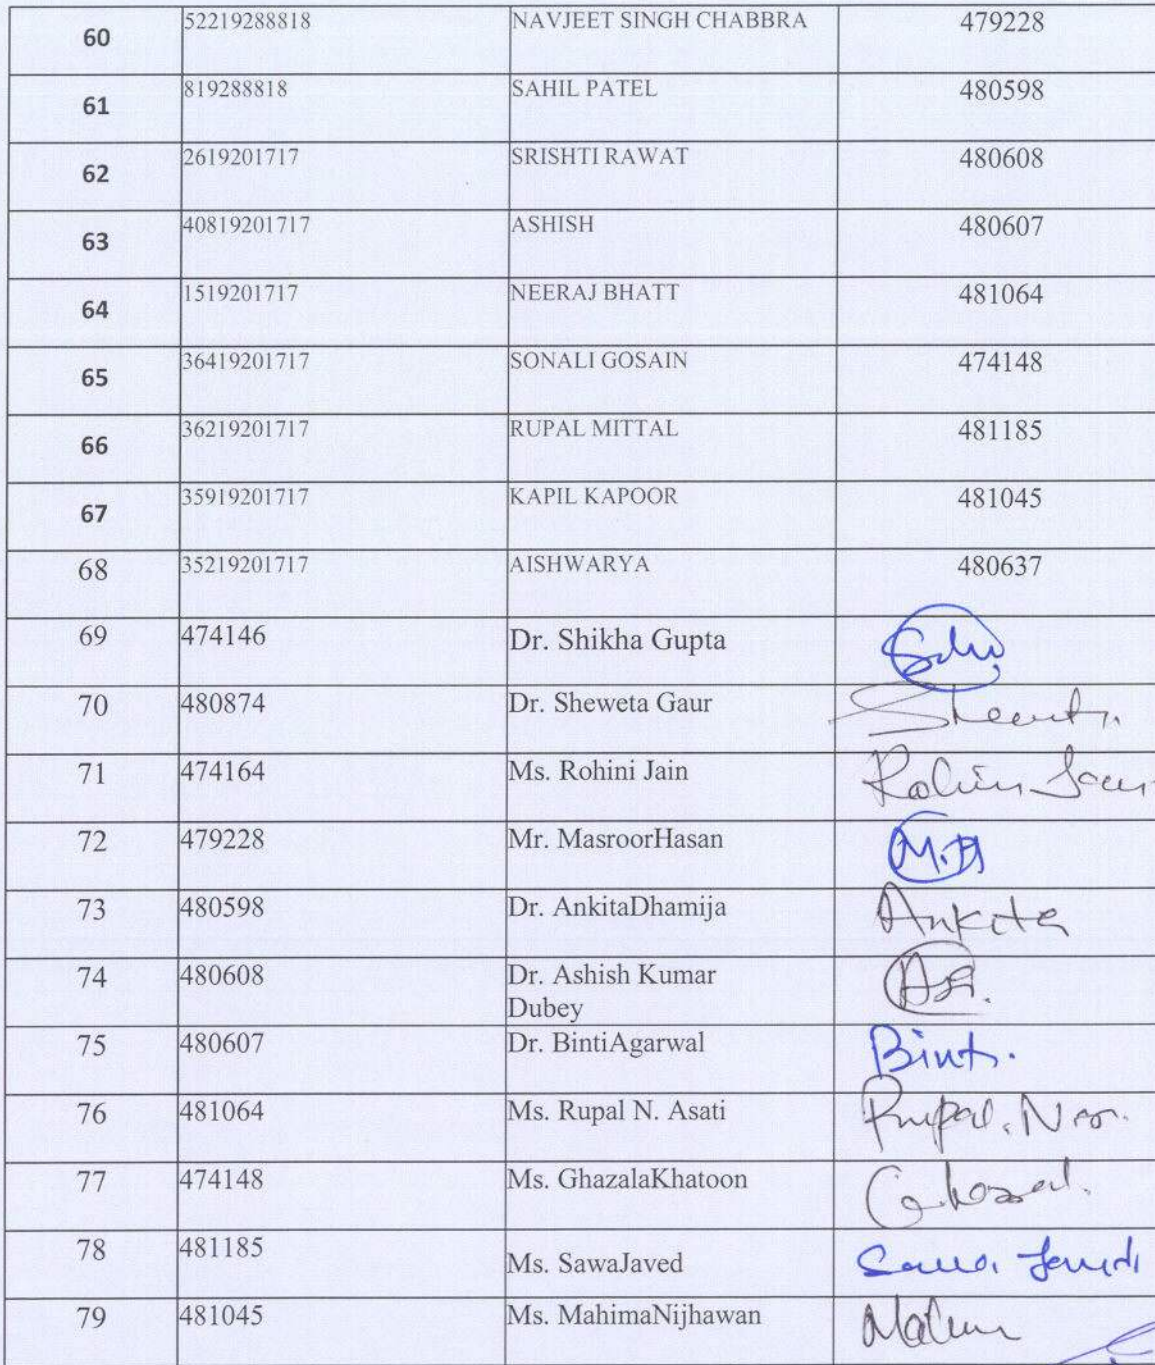 60 52219288818 NAVJEET SINGH CHABBRA 479228
61 819288818 SAHIL PATEL 480598
62 2619201717 SRISHTI RAWAT 480608
63 40819201717 ASHISH 480607
64 1519201717 NEERAJ BHATT 481064
65 36419201717 SONALI GOSAIN 474148
66 36219201717 RUPAL MITTAL 481185
67 35919201717 KAPIL KAPOOR 481045
68 35219201717 AISHWARYA 480637
69 474146 Dr. Shikha Gupta
70 480874 Dr. Sheweta Gaur
71 474164 Ms. Rohini Jain
72 479228 Mr. MasroorHasan M.H
73 480598 Dr. AnkitaDhamija Ankita
74 480608 Dr. Ashish Kumar
Dubey
75 480607 Dr. BintiAgarwal Binti
76 481064 Ms. Rupal N. Asati Rupal. N
77 474148 Ms. GhazalaKhatoon
78 481185 Ms. SawaJaved
79 481045 Ms. MahimaNijhawan